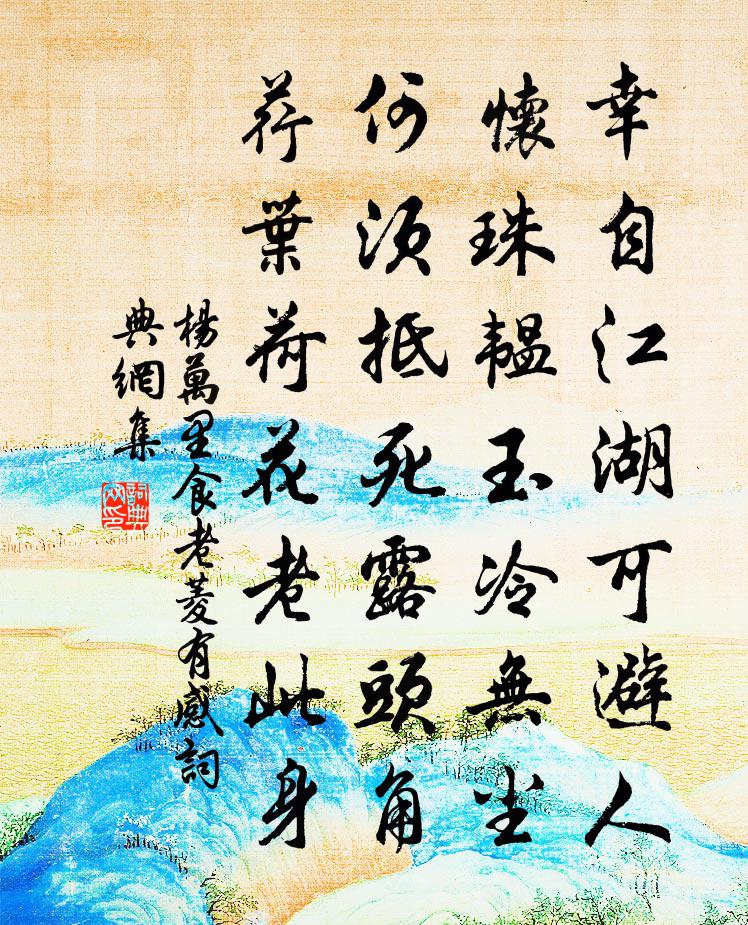 幸自江湖可避人
懷珠韞玉冷無尘
何須抵死露頭角
荇葉荷花老此身
楊萬里食老菱有感詞
典網集
詞典